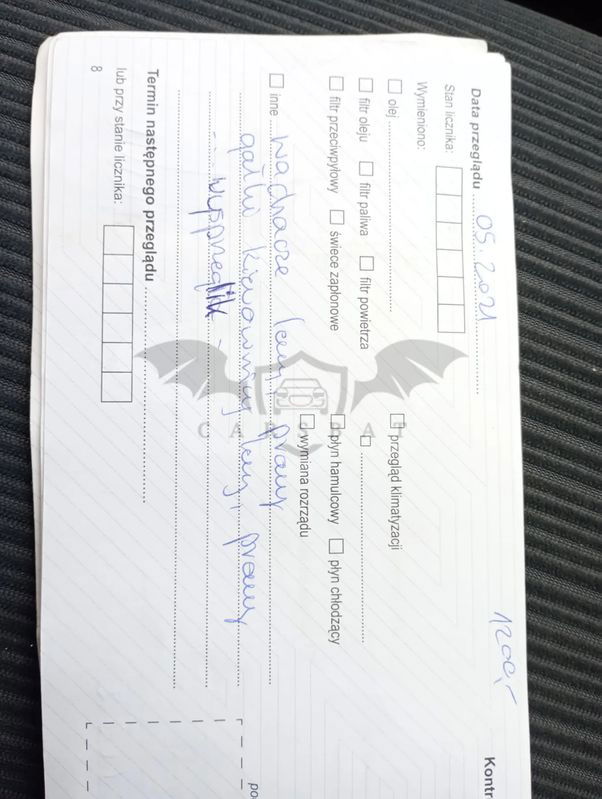 1200,-
Kontr
Data przeglądu 05.2021
Stan licznika:
Wymieniono:
olej
przegląd klimatyzacji
filtr oleju filtr paliwa filtr powietrza
filtr przeciwpyłowy świece zapłonowe płyn hamulcowy płyn chłodzący
wymiana rozrządu
inne wachacze lewy, prawy
gałki kierownicy lewy, prawy
CAR BAT
Termin następnego przeglądu
lub przy stanie licznika:
8